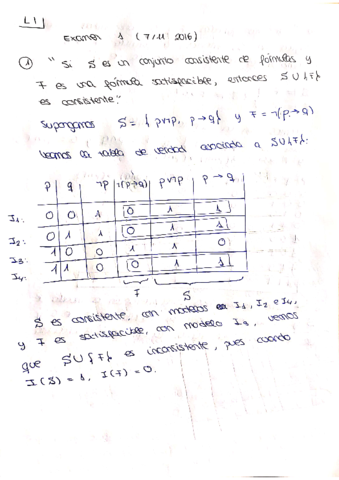 LI
Examen 1 (7/11 2016)
① "Si S es un conjunto consistente de fórmulas y
F es una fórmula satisfacible, entonces S∪{F}
es consistente."
Supongamos S = { p∨¬p, p→q } y F = ¬(p→q)
Veamos la tabla de verdad asociada a S∪{F}:
p q ¬p ¬(p→q) p∨¬p p→q
I₁: 0 0 1 0 1 1
I₂: 0 1 1 0 1 1
I₃: 1 0 0 1 1 0
I₄: 1 1 0 0 1 1
F S
S es consistente, con modelos I₁, I₂ e I₄,
y F es satisfacible, con modelo I₃, vemos
que S∪{F} es inconsistente, pues cuando
I(S) = 1, I(F) = 0.